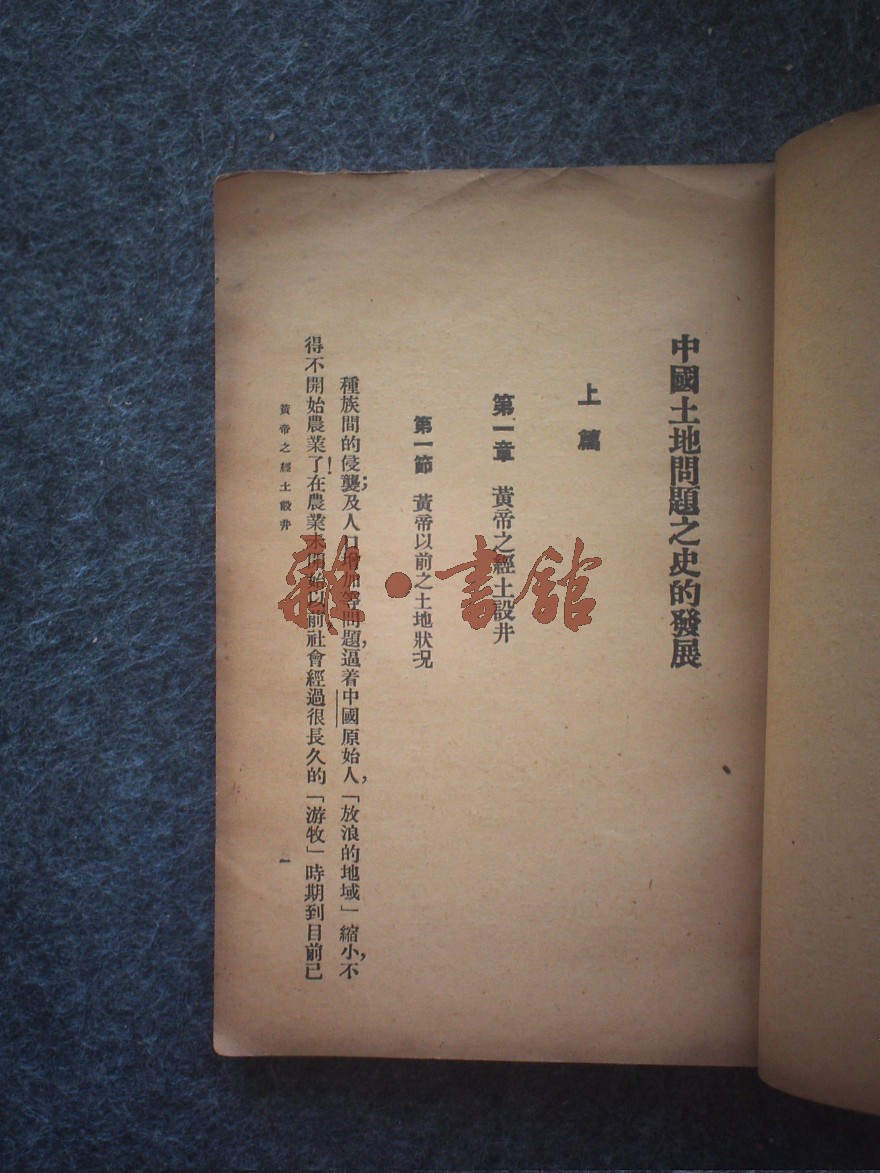 中國土地問題之史的發展
上篇
第一章 黃帝之經土設井
第一節 黃帝以前之土地狀况
種族間的侵襲；及人口增加等問題，逼着中國原始人，「放浪的地域」縮小，不
得不開始農業了！在農業未開始以前社會經過很長久的「游牧」時期到目前已
黃帝之經土設井
一
雜·書館